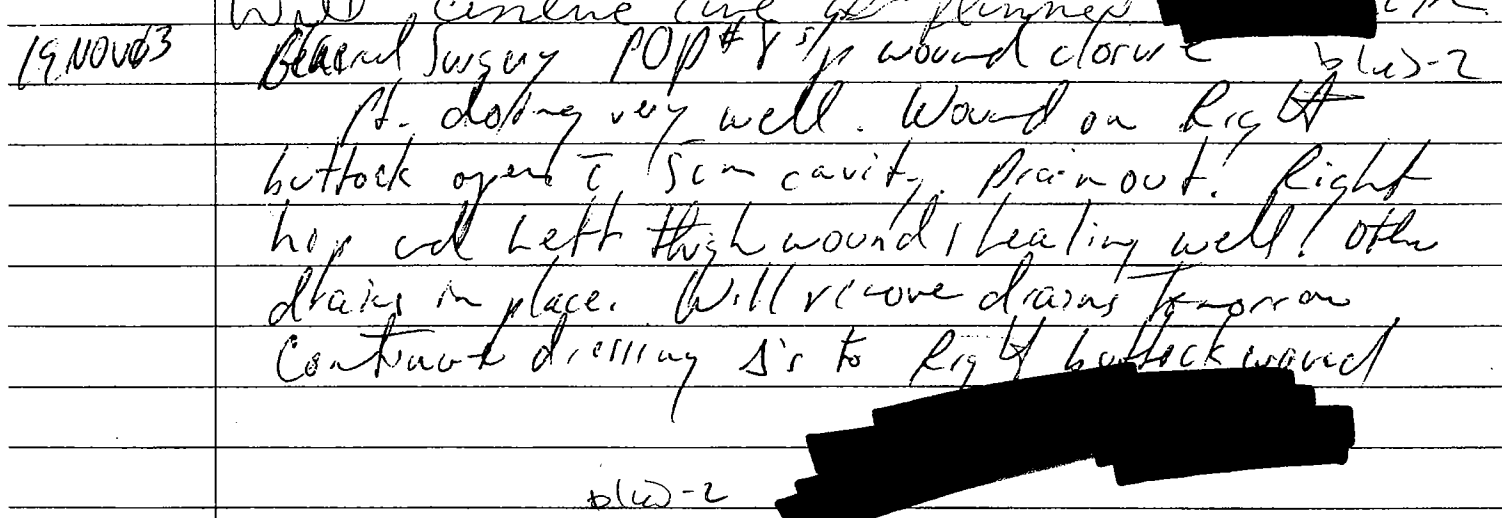 Will continue care as planned
19 NOV 03 General Surgery POD #8 s/p wound closure b(6)-2
Pt. doing very well. Wound on Right
buttock open c̄ 5cm cavity. Drain out. Right
hip and Left thigh wounds healing well. Other
drains in place. Will remove drains tomorrow
Continue dressing Δ's to Right buttock wound
b(6)-2